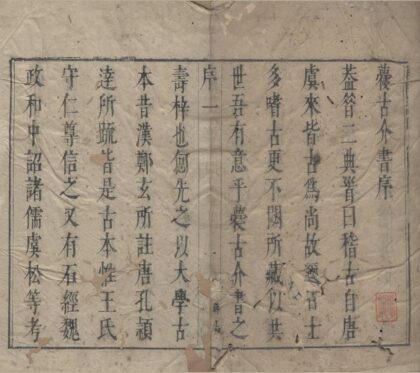 藂古介書序
葢二典曰稽古自唐
虞來皆古為尚故士
多嗜古更不閟所藏以共
世吾有意乎藂古介書之
序一
壽梓也何先之以大學古
本昔漢鄭玄所註唐孔頴
達所疏皆是古本惟王氏
守仁尊信之又有石經魏
政和中詔諸儒虞松等考